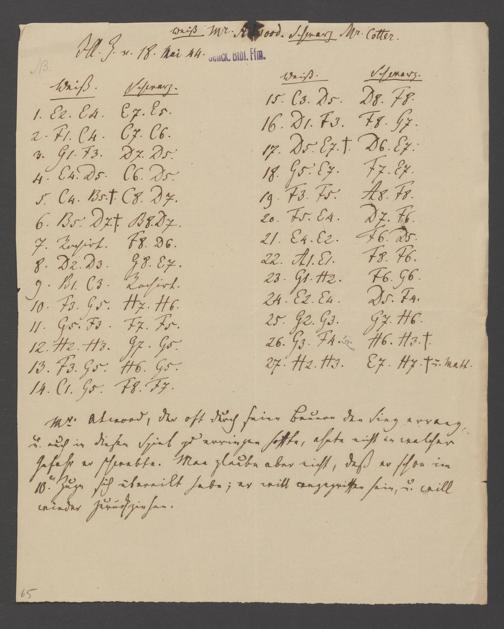 Weiß. Mr. Atwood. Schwarz Mr. Cotter.
Ill. Z. v. 18. Mai 44.
Senck. Bibl. Ffm.
Weiß. Schwarz.
1. E2. E4. E7. E5.
2. F1. C4. C7. C6.
3. G1. F3. D7. D5.
4. C4. D5. C6. D5.
5. C4. B5† C8. D7.
6. B5. D7† B8. D7.
7. Rochirt. F8. D6.
8. D2. D3. G8. E7.
9. B1. C3. Rochirt.
10. F3. G5. H7. H6.
11. G5. F3. F7. F5.
12. H2. H3. G7. G5.
13. F3. G5. H6. G5.
14. C1. G5. F8. F7.
Weiß. Schwarz.
15. C3. D5. D8. F8.
16. D1. F3. F8. G7.
17. D5. E7.† D6. E7.
18. G5. E7. F7. E7.
19. F3. F5. A8. F8.
20. F5. E4. D7. F6.
21. E4. E2. F6. D5.
22. A1. E1. F8. F6.
23. G1. H2. F6. G6.
24. E2. E4. D5. F4.
25. G2. G3. G7. H6.
26. G3. F4. H6. H3.†
27. H2. H3. E7. H7.† u. Matt.
Mr. Atwood, der oft durch seine Bauern den Sieg errang,
u. auch in diesem Spiel zu erringen hoffte, ahnte nicht in welcher
Gefahr er schwebte. Man glaube aber nicht, daß er schon im
10. Zuge sich übereilt habe; er will angegriffen sein, u. will
wieder zurückziehen.
65